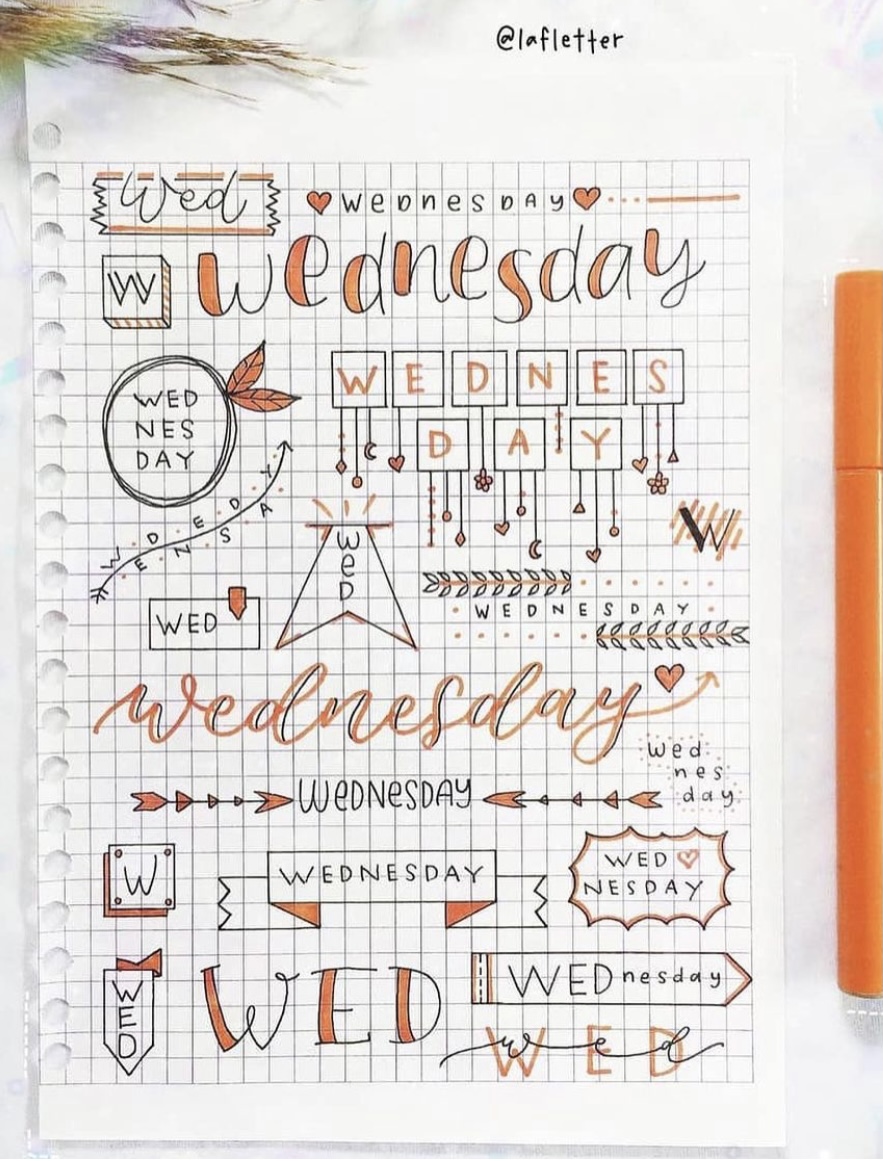 @lafletter
Wed
wednesday
W
wednesday
WED
NES
DAY
WEDNES
DAY
WEDNESDAY
WeD
W
WED
WEDNESDAY
wednesday
wed
nes
day
WeDNesDAY
W
WEDNESDAY
WED
NESDAY
WED
WED
WEDnesday
WED
wed